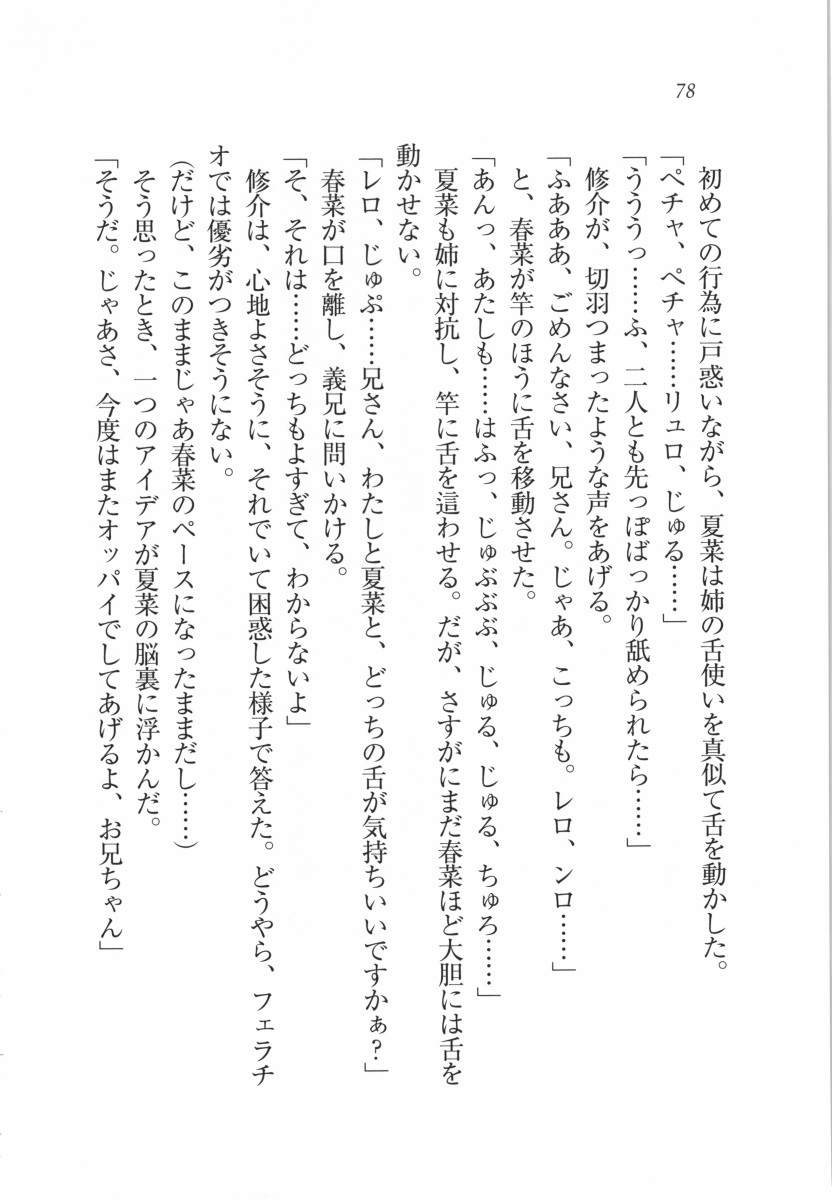 78
初めての行為に戸惑いながら、夏菜は姉の舌使いを真似て舌を動かした。
「ペチャ、ペチャ……リュロ、じゅる……」
「うううっ……ふ、二人とも先っぽばっかり舐められたら……」
修介が、切羽つまったような声をあげる。
「ふあああ、ごめんなさい、兄さん。じゃあ、こっちも。レロ、ンロ……」
と、春菜が竿のほうに舌を移動させた。
「あんっ、あたしも……はふっ、じゅぶぶぶ、じゅる、じゅる、ちゅろ……」
夏菜も姉に対抗し、竿に舌を這わせる。だが、さすがにまだ春菜ほど大胆には舌を
動かせない。
「レロ、じゅぷ……兄さん、わたしと夏菜と、どっちの舌が気持ちいいですかぁ？」
春菜が口を離し、義兄に問いかける。
「そ、それは……どっちもよすぎて、わからないよ」
修介は、心地よさそうに、それでいて困惑した様子で答えた。どうやら、フェラチ
オでは優劣がつきそうにない。
（だけど、このままじゃあ春菜のペースになったままだし……）
そう思ったとき、一つのアイデアが夏菜の脳裏に浮かんだ。
「そうだ。じゃあさ、今度はまたオッパイでしてあげるよ、お兄ちゃん」